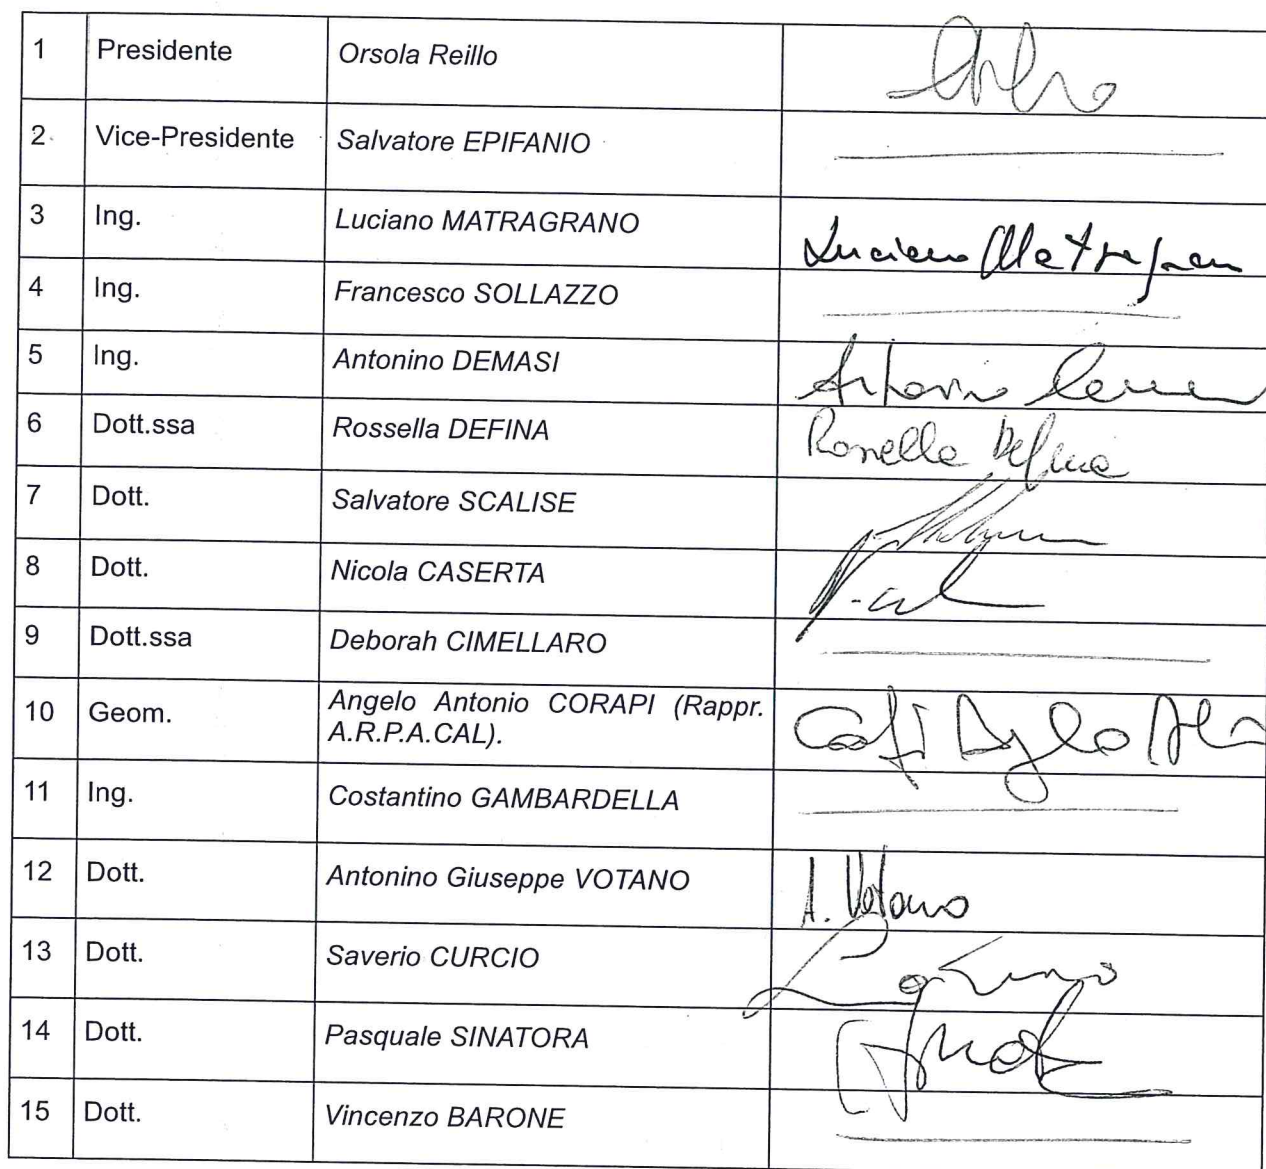 1 Presidente Orsola Reillo
2 Vice-Presidente Salvatore EPIFANIO
3 Ing. Luciano MATRAGRANO Luciano Matragrano
4 Ing. Francesco SOLLAZZO
5 Ing. Antonino DEMASI
6 Dott.ssa Rossella DEFINA Rossella Defina
7 Dott. Salvatore SCALISE
8 Dott. Nicola CASERTA
9 Dott.ssa Deborah CIMELLARO
10 Geom. Angelo Antonio CORAPI (Rappr.
A.R.P.A.CAL).
11 Ing. Costantino GAMBARDELLA
12 Dott. Antonino Giuseppe VOTANO A. Votano
13 Dott. Saverio CURCIO
14 Dott. Pasquale SINATORA
15 Dott. Vincenzo BARONE